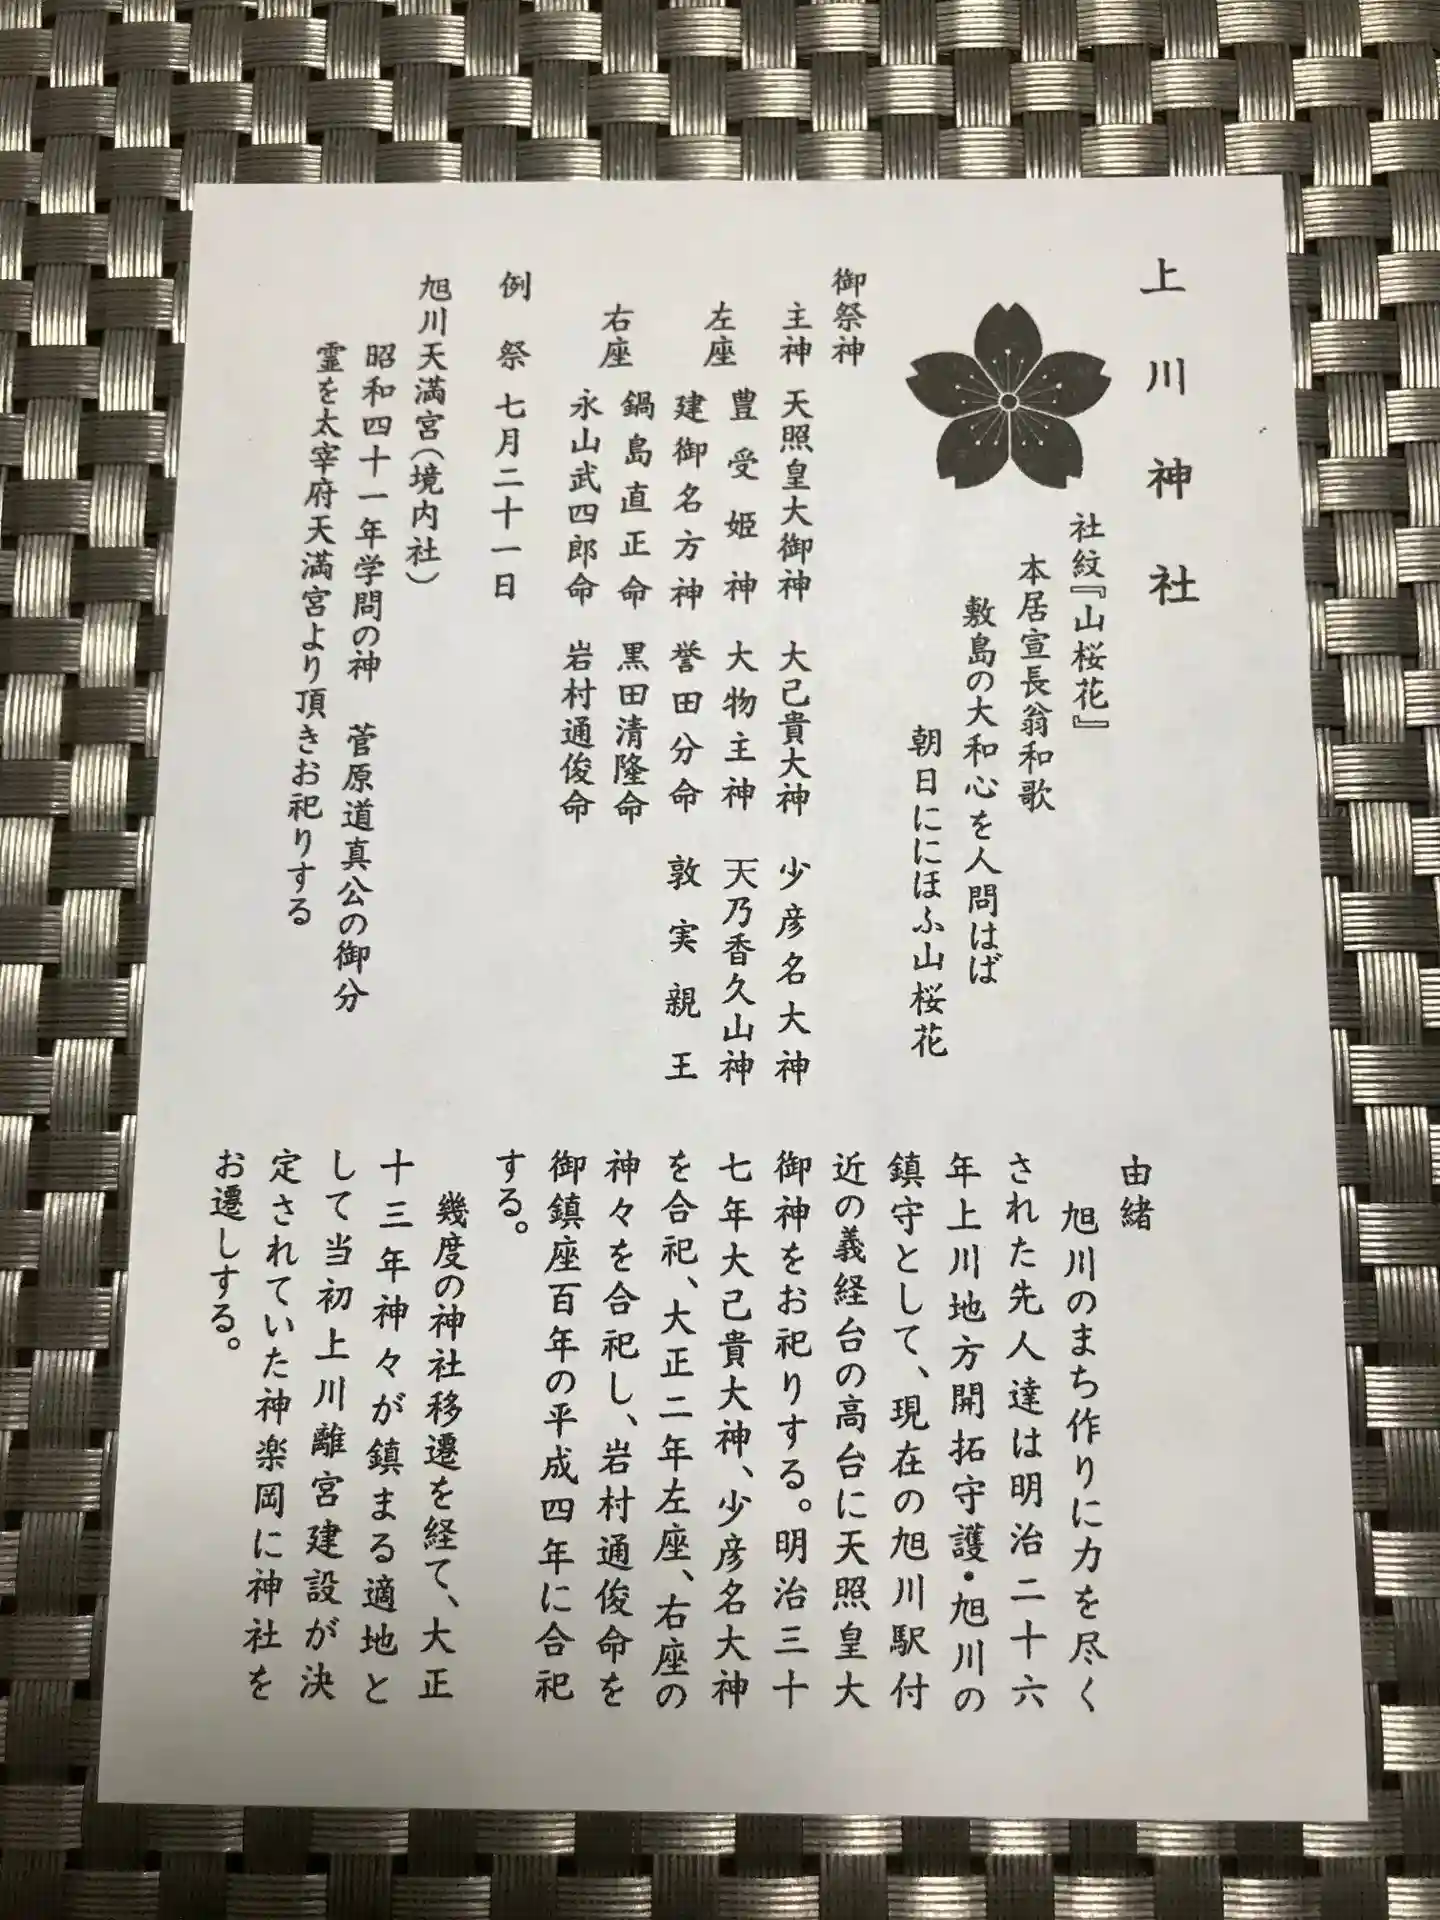 上川神社
社紋『山桜花』
本居宣長翁和歌
敷島の大和心を人問はば
朝日ににほふ山桜花
御祭神
主神 天照皇大御神 大己貴大神 少彦名大神
左座
豊受姫神 大物主神 天乃香久山神
建御名方神 誉田分命 敦実親王
右座
鍋島直正命 黒田清隆命
永山武四郎命 岩村通俊命
例祭 七月二十一日
旭川天満宮(境内社)
昭和四十一年学問の神 菅原道真公の御分
霊を太宰府天満宮より頂きお祀りする
由緒
旭川のまち作りに力を尽く
された先人達は明治二十六
年上川地方開拓守護・旭川の
鎮守として、現在の旭川駅付
近の義経台の高台に天照皇大
御神をお祀りする。明治三十
七年大己貴大神、少彦名大神
を合祀、大正二年左座、右座の
神々を合祀し、岩村通俊命を
御鎮座百年の平成四年に合祀
する。
幾度の神社移遷を経て、大正
十三年神々が鎮まる適地と
して当初上川離宮建設が決
定されていた神楽岡に神社を
お遷しする。